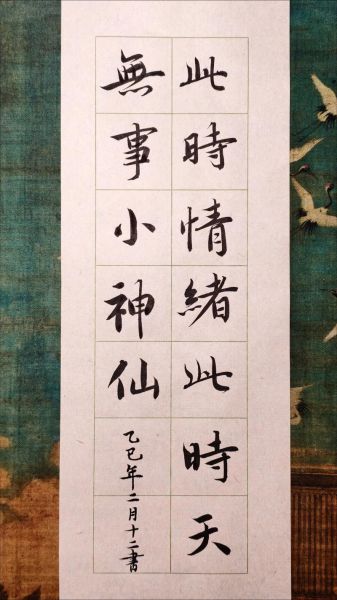 此時情緒此時天
無事小神仙
乙巳年二月十二書